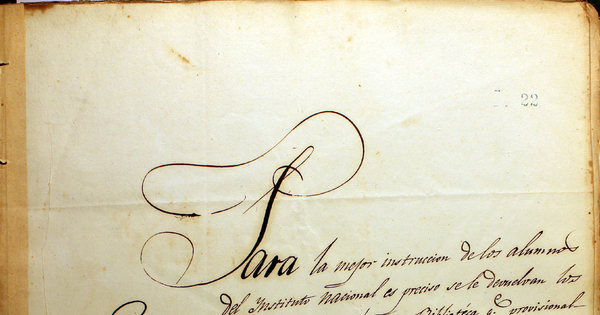 22
Para la mejor instruccion de los alumnos
del Instituto Nacional es preciso se le devuelvan los
Biblioteca q.e provisional